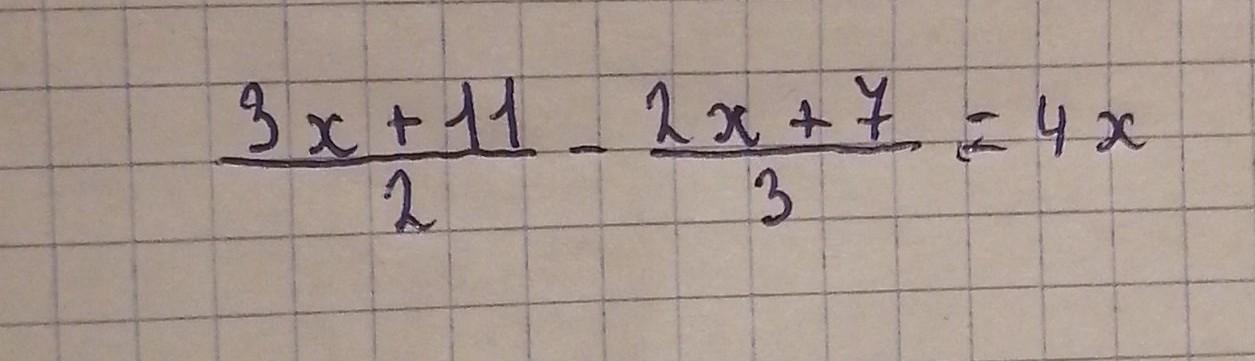 (3x + 11)/2 - (2x + 7)/3 = 4x